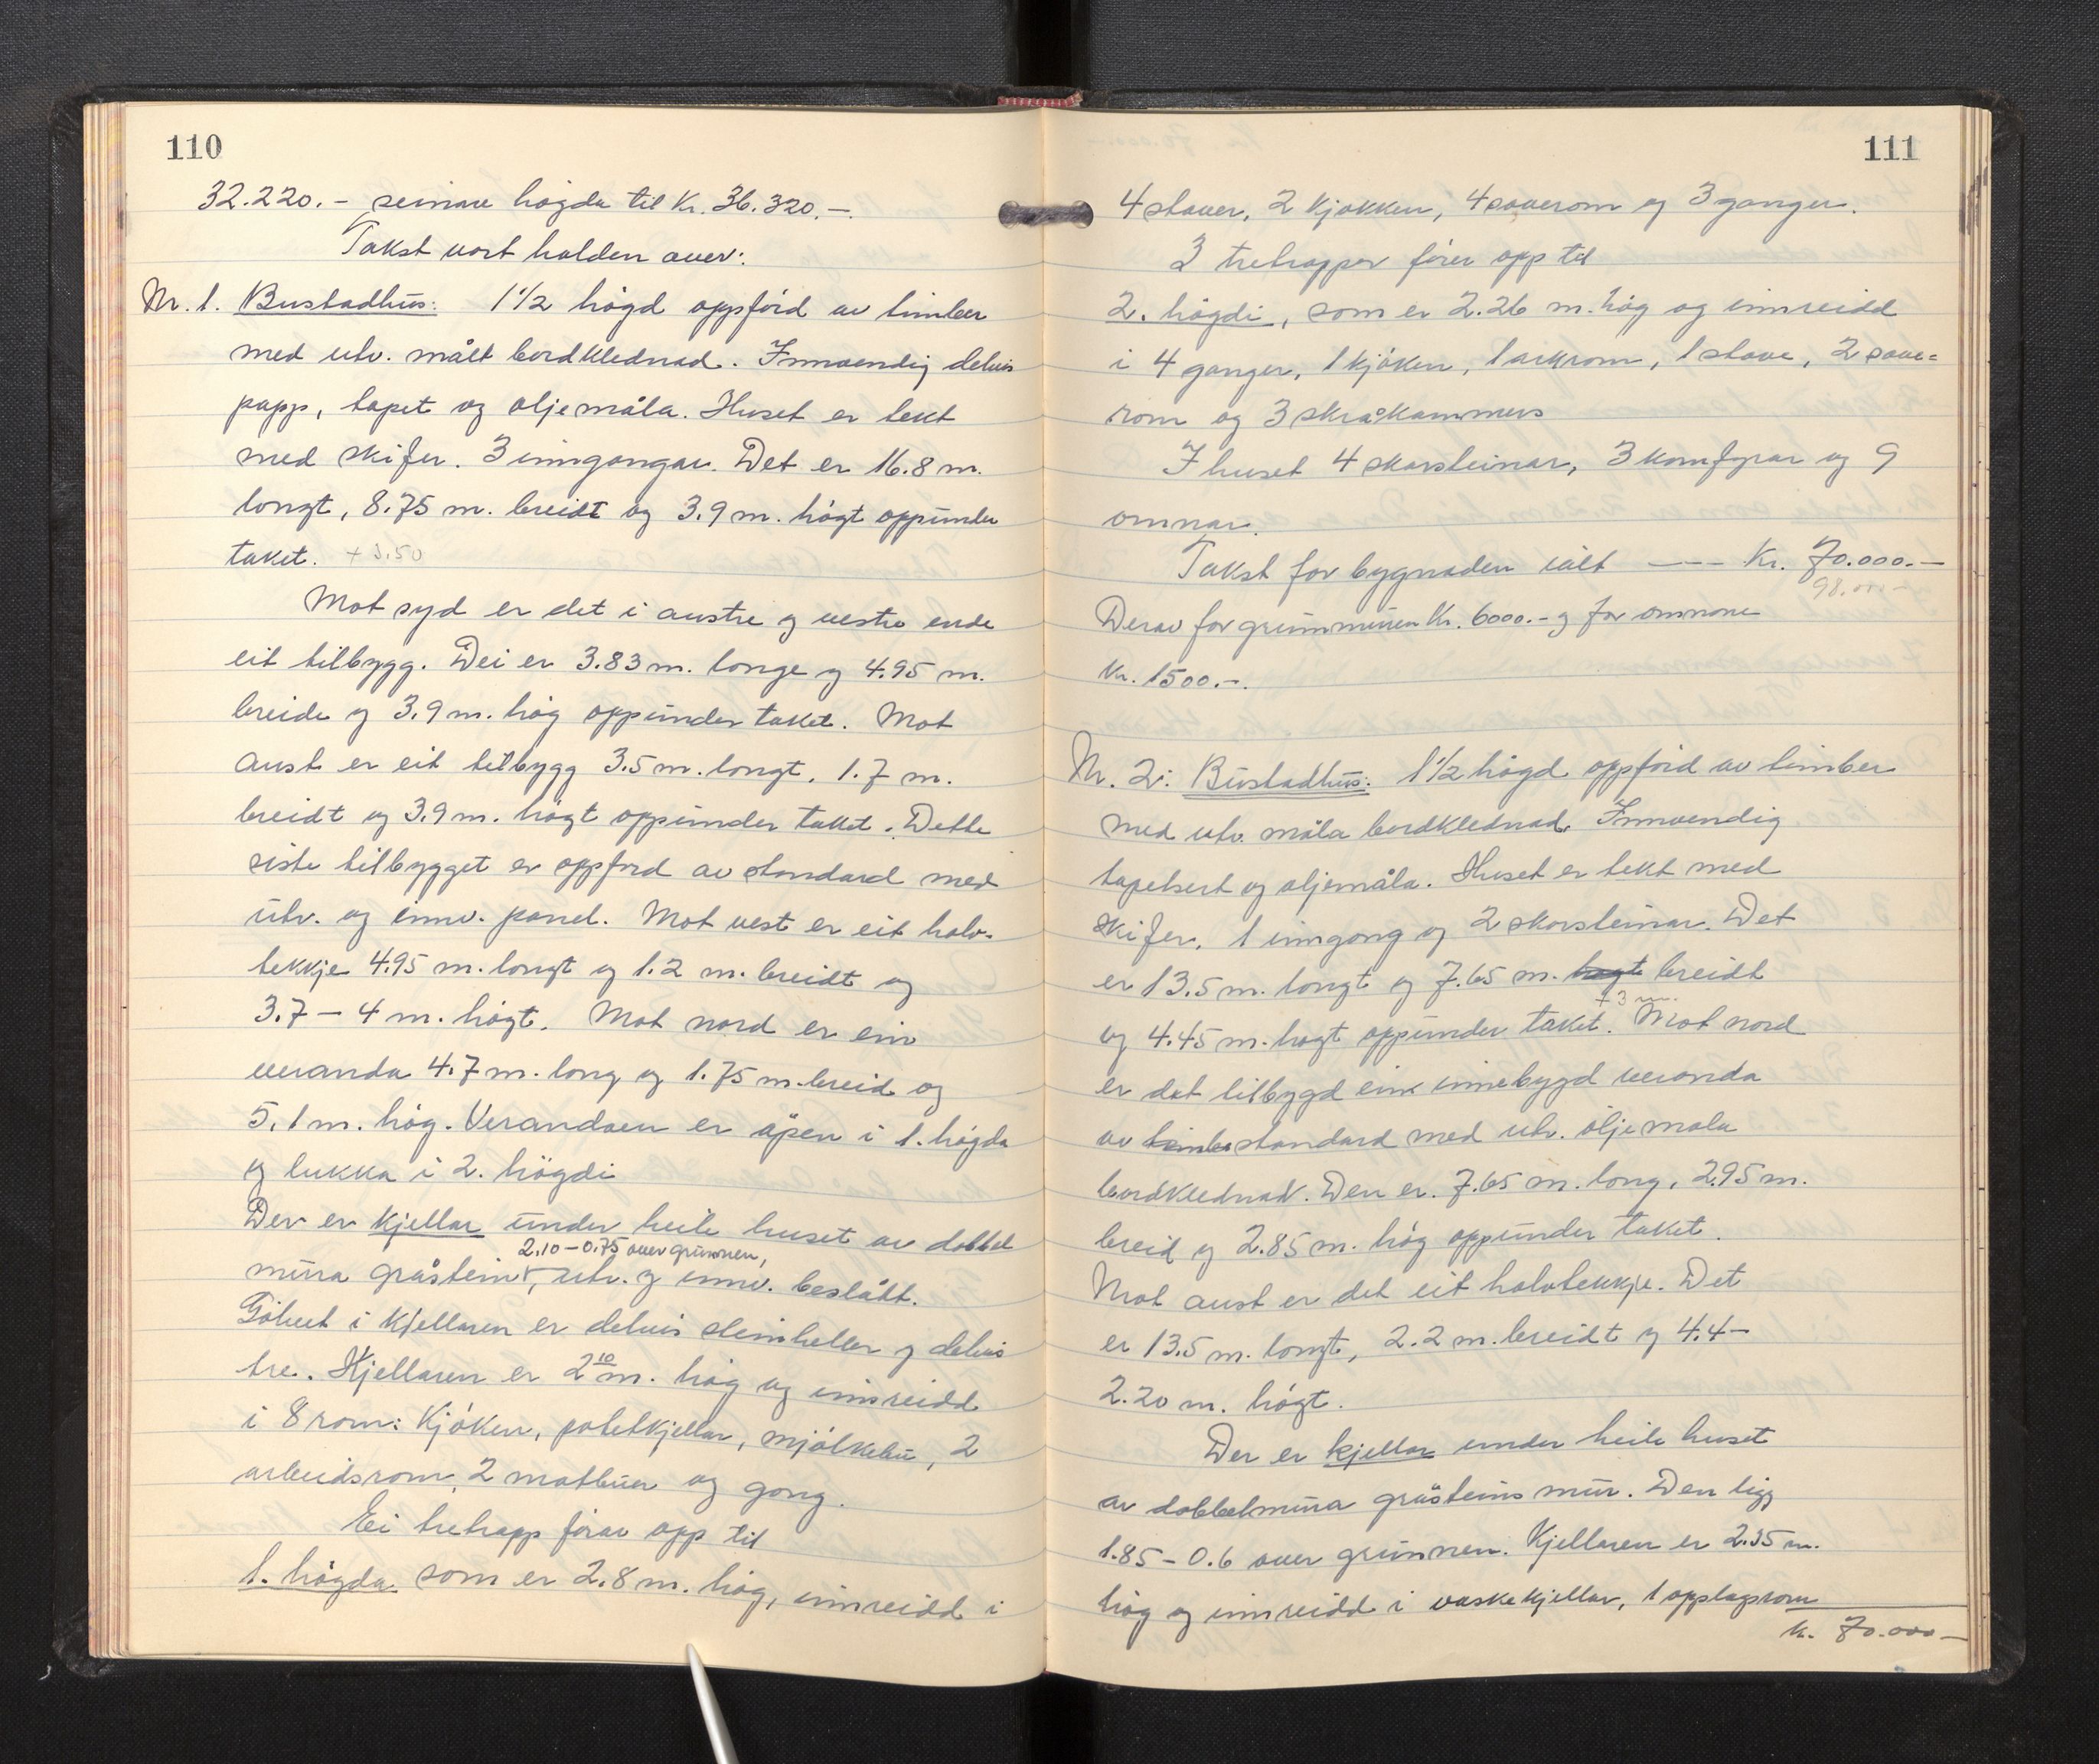 110
32.220.- seinare høgda til Kr. 36.320.-.
Takst vart halden over:
Nr. 1. Bustadhus: 1 1/2 høgd oppförd av timber
med utv. målt bordklednad. Innvendig delvis
papp, tapet og oljemåla. Huset er tekt
med skifer. 3 inngongar. Det er 16.8 m.
longt, 8.75 m. breidt og 3.9 m. högt oppunder
taket. + 3.50
Mot syd er det i austre og vestre ende
eit tilbygg. Dei er 3.83 m. longe og 4.95 m.
breide og 3.9 m. høg oppunder taket. Mot
aust er eit tilbygg 3.5 m. longt, 1.7 m.
breidt og 3.9 m. högt oppunder taket. Dette
siste tilbygget er oppførd av standard med
utv. og innv. panel. Mot vest er eit halv-
tekkje 4.95 m. longt og 1.2 m. breidt og
3.7 – 4 m. högt. Mot nord er ein
veranda 4.7 m. long og 1.75 m. breid og
5.1 m. høg. Verandaen er åpen i 1. høgda
og lukka i 2. högdi
Der er kjellar under heile huset av dobbel
2.10 – 0.75 over grunnen,
mura gråstein, utv. og innv. beslått.
Gölvet i kjellaren er delvis steinheller og delvis
tre. Kjellaren er 2 10 m. høg og innreidd
i 8 rom: Kjöken, potetkjellar, mjölkebu, 2
arbeidsrom, 2 matbuer og gong.
Ei tretrapp förar opp til
1. högda som er 2.8 m. høg, innreidd i
111
4 stover, 2 kjøkken, 4 soverom og 3 ganger.
3 tretrapper förer opp til
2. högdi, som er 2.26 m. høg og innreidd
i 4 ganger, 1 kjöken, 1 arkrom, 1 stove, 2 sove=
rom og 3 skråkammers
I huset 4 skorsteinar, 3 komfyrar og 9
omnar.
Takst for bygnaden ialt —— Kr. 70.000.-
98.000 -
Derav for grunnmuren Kr. 6000.- og for omnane
Kr. 1500.-.
Nr. 2: Bustadhus: 1 1/2 högd oppförd av timber
med utv. måla bordklednad. Innvendig
tapetsert og oljemåla. Huset er tekt med
skifer. 1 inngong og 2 skorsteinar. Det
er 13.5 m. longt og 7.65 m. høgt breidt
+ 3 m.
og 4.45 m. høgt oppunder taket. Mot nord
er det tilbygd ein innebygd veranda
av timber standard med utv. olje mala
bordklednad. Den er 7.65 m. long, 2.95 m.
breid og 2.85 m. høg oppunder taket.
Mot aust er det eit halvtekkje. Det
er 13.5 m. longt, 2.2 m. breidt og 4.4 –
2.20 m. högt.
Der er kjellar under heile huset
av dobbelmura gråsteins mur. Den ligg
1.85 – 0.6 over grunnen. Kjellaren er 2.35 m.
høg og innreidd i vaskekjellar, 1 opplagsrom
k. 70.000 –